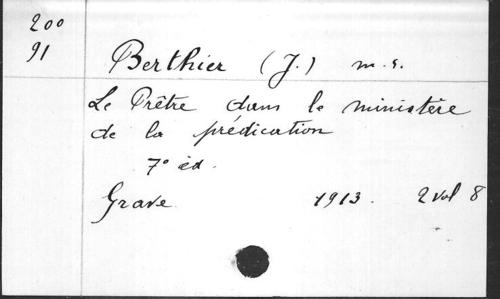 200
91
Berthier (J.) m.s.
Le Prêtre dans le ministère
de la prédication
7° éd.
Grave 1913. 2 vol 8